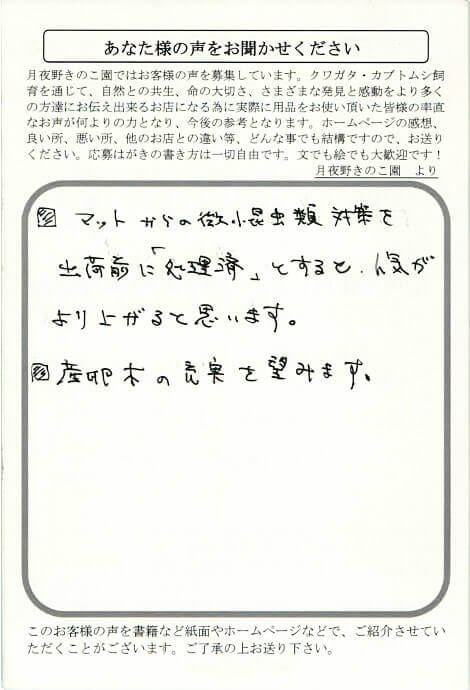 あなた様の声をお聞かせください
月夜野きのこ園ではお客様の声を募集しています。クワガタ・カブトムシ飼
育を通じて、自然との共生、命の大切さ、さまざまな発見と感動をより多く
の方達にお伝え出来るお店になる為に実際に用品をお使い頂いた皆様の率直
なお声が何よりの力となり、今後の参考となります。ホームページの感想、
良い所、悪い所、他のお店との違い等、どんな事でも結構ですので、お送り
ください。応募はがきの書き方は一切自由です。文でも絵でも大歓迎です！
月夜野きのこ園　より
マットからの微小昆虫類対策を
出荷前に「処理済」とすると、人気が
より上がると思います。
産卵木の充実を望みます。
このお客様の声を書籍など紙面やホームページなどで、ご紹介させてい
ただくことがございます。ご了承の上お送り下さい。